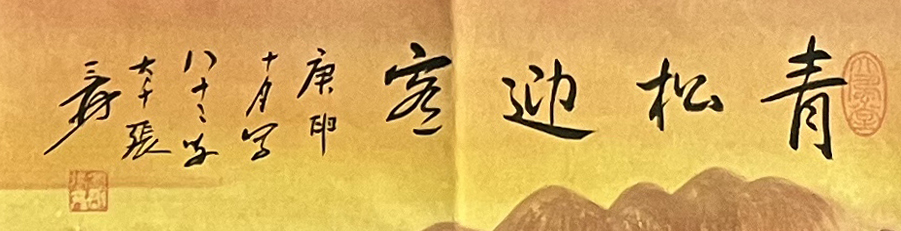 大風堂
青松迎客
庚卯
十月写
八十二叟
大千張
爰